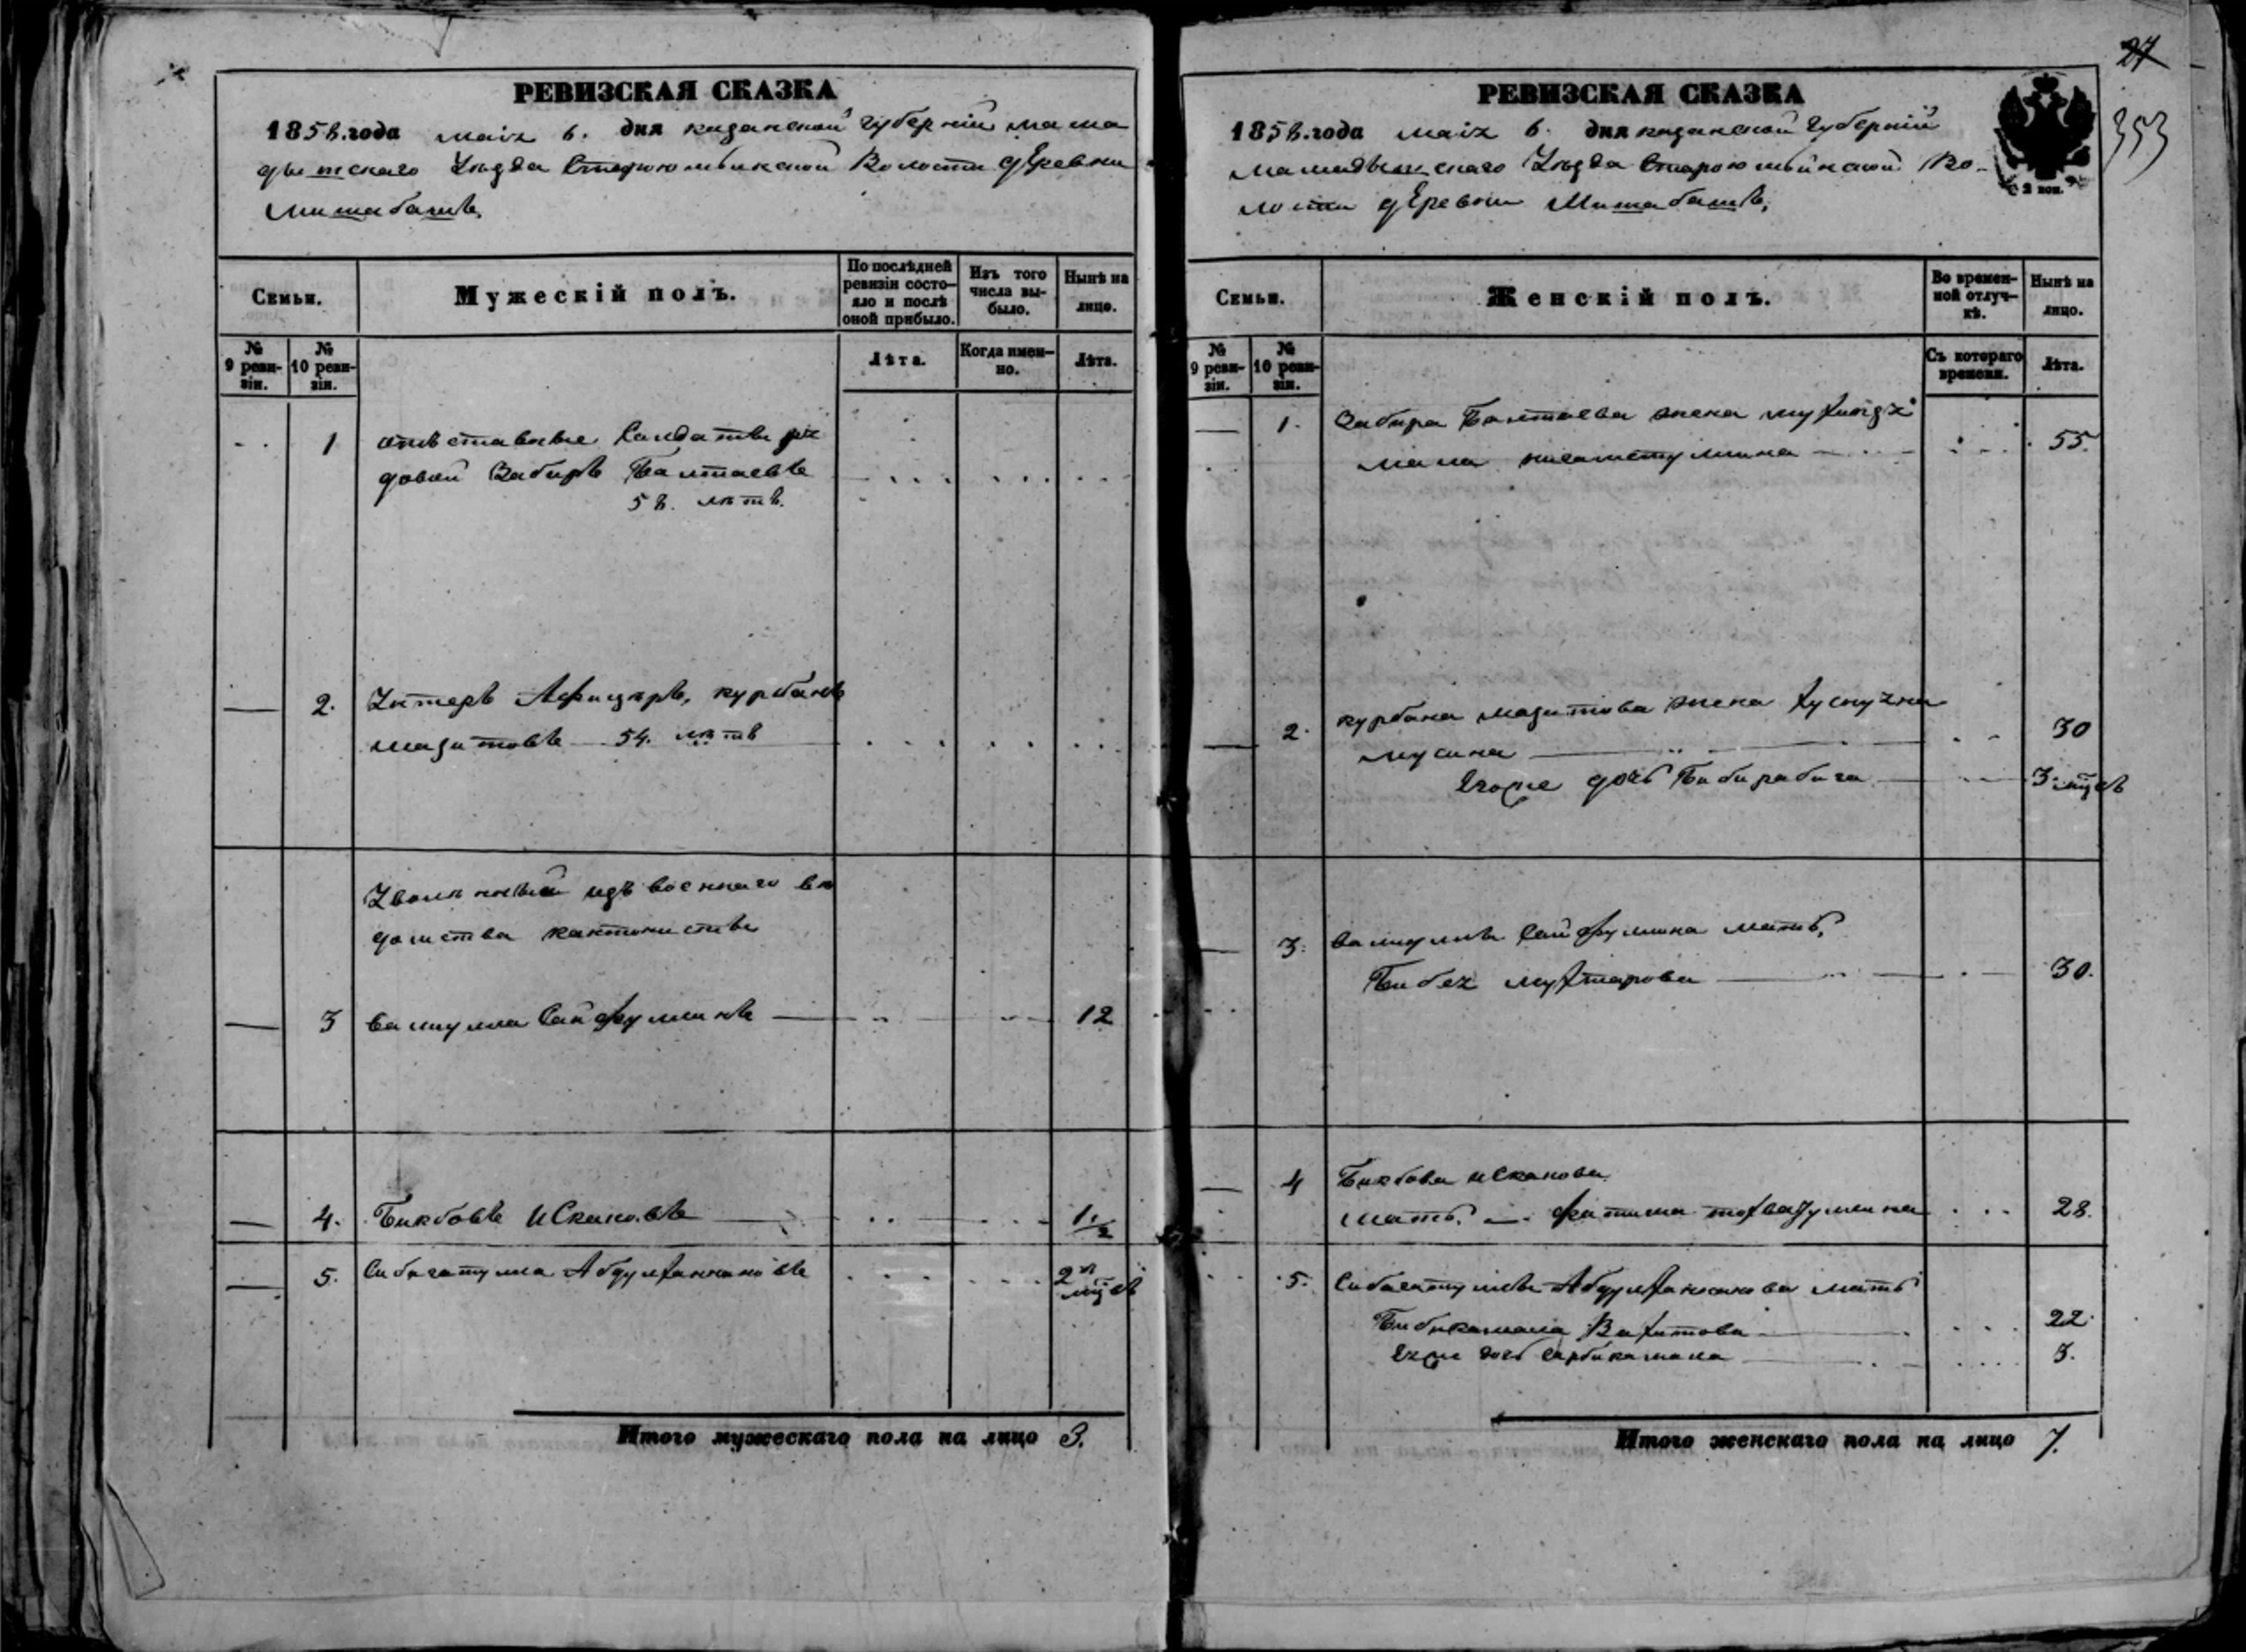 РЕВИЗСКАЯ СКАЗКА
1858.года маія 6. дня казанской губерніи мама
дышскаго уѣзда Староюмьинской Волости дЕревни
Мишабашъ,
Семьи.
Мужескій полъ.
По послѣдней ревизіи состояло и послѣ оной прибыло.
Изъ того числа выбыло.
Нынѣ на лицо.
№ 9 ревизіи.
№ 10 ревизіи.
Лѣта.
Когда именно.
Лѣта.
1 отъставные Солдаты ря
довой Забиръ Балтаевъ
58. лѣтъ.
2. Унтеръ Афицеръ, курбанъ
мазитовъ 54. лѣтъ
Уволиный изъ военнаго вѣ
домства кантонисты
3 валиулла Сайфуллинъ 12
4. Бикбовъ Искаковъ 1/2
5. Сибагатулла Абдулханнановъ 2 мцсъ
Итого мужескаго пола на лицо 3.
27
353
РЕВИЗСКАЯ СКАЗКА
1858.года маія 6. дня казанской губерніи
мамадышскаго уѣзда Староюмьинской Во-
лости дЕревни Мишабашъ,
2 коп.
Семьи.
Женскій полъ.
Во временной отлучкѣ.
Нынѣ на лицо.
№ 9 ревизіи.
№ 10 ревизіи.
Съ котораго времени.
Лѣта.
1. Забира Балтаева жена
55.
2. курбана мазитова жена
мусина 30
Егоже дочь Бибирабига 3 мцсъ
3. валиуллы Сайфуллина мать,
Бибея мухтарова 30.
4 Бикбова Искакова
мать. Фатима 28.
5. Сибагатуллы Абдулханнанова мать
Бибикамала Вахитова 22.
Ея же дочь сарбикамала 3.
Итого женскаго пола на лицо 7.